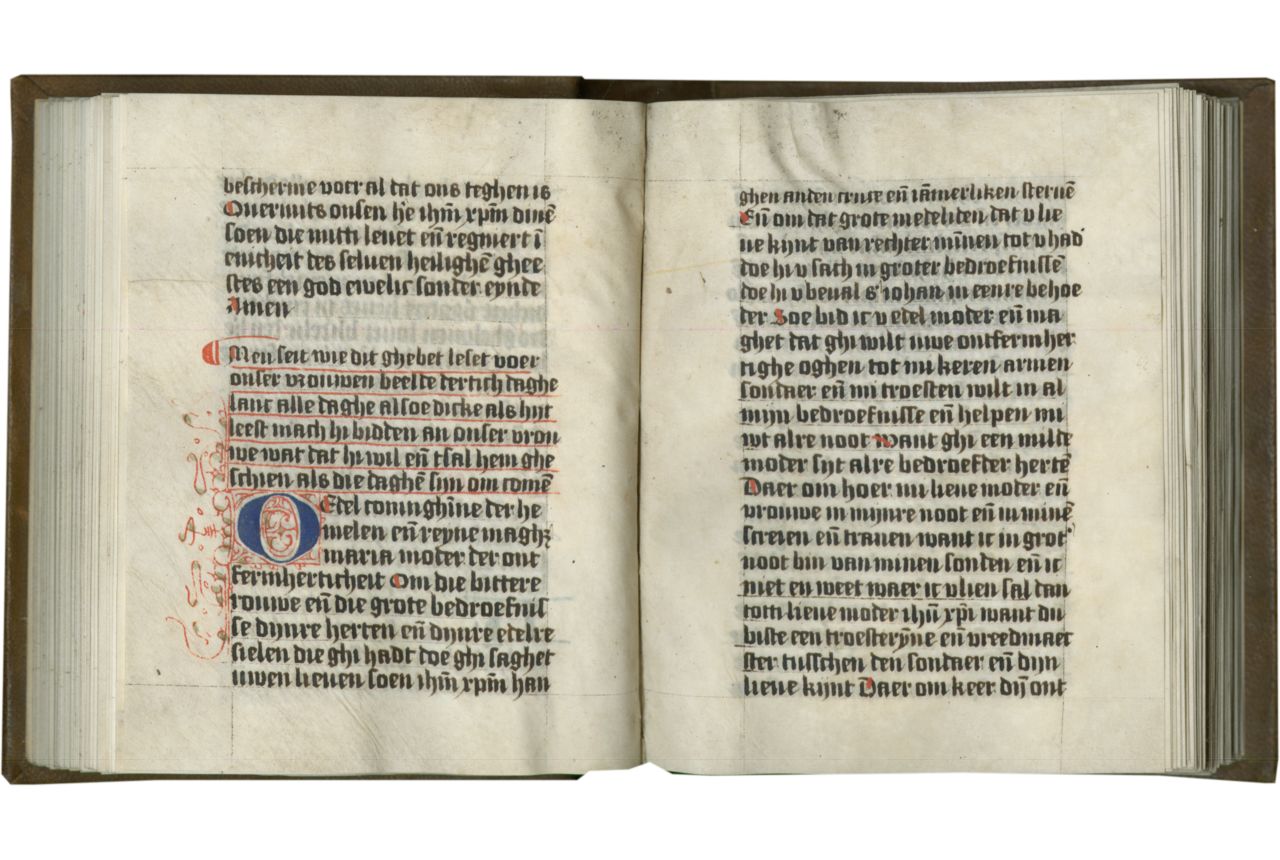 bescherme voer al dat ons teghen is
Ouermits onsen h'e ihm̄ xpm̄ dinē
soen die mitti leuet en̄ regniert ī
enicheit des seluen heilighē ghee
stes een god ewelic sonder eynde
Amen
Men seit wie dit ghebet leset voer
onser vrouwen beelde dertich daghe
lanc alle daghe alsoe dicke als hijt
leest mach hi bidden an onser vrou
we wat dat hi wil en̄ tsal hem ghe
schien als die daghē sijn om comē
O Edel coninghīne der he
melen en̄ reyne maghꝫ
maria moder der ont
fermherticheit Om die bittere
rouwe en̄ die grote bedroefnis
se dijnre herten en̄ dijnre edelre
sielen die ghi hadt doe ghi saghet
uwen lieuen soen ihm̄ xpm̄ han
ghen anden cruce en̄ iāmerliken steruē
En̄ om dat grote medeliden dat v lie
ue kijnt van rechter mīnen tot v had'
doe hi v sach in groter bedroefnissē
doe hi v beual s' iohan in eenre behoe
der Soe bid ic v edel moder en̄ ma
ghet dat ghi wilt uwe ontfermher
tighe oghen tot mi keren armen
sondaer en̄ mi troesten wilt in al
mijn bedroefnisse en̄ helpen mi
wt alre noot want ghi een milde
moder sijt alre bedroefder hertē
Daer om hoer mi lieue moder en̄
vrouwe in mijnre noot en̄ in minē
screien en̄ tranen want ic in grot'
noot bin van minen sonden en̄ ic
niet en weet waer ic vlien sal dan
totti lieue moder ihū xp̄i want du
biste een troesterȳne en̄ vreedmaec
ster tusschen den sondaer en̄ dijn
lieue kijnt Daer om keer dij ont